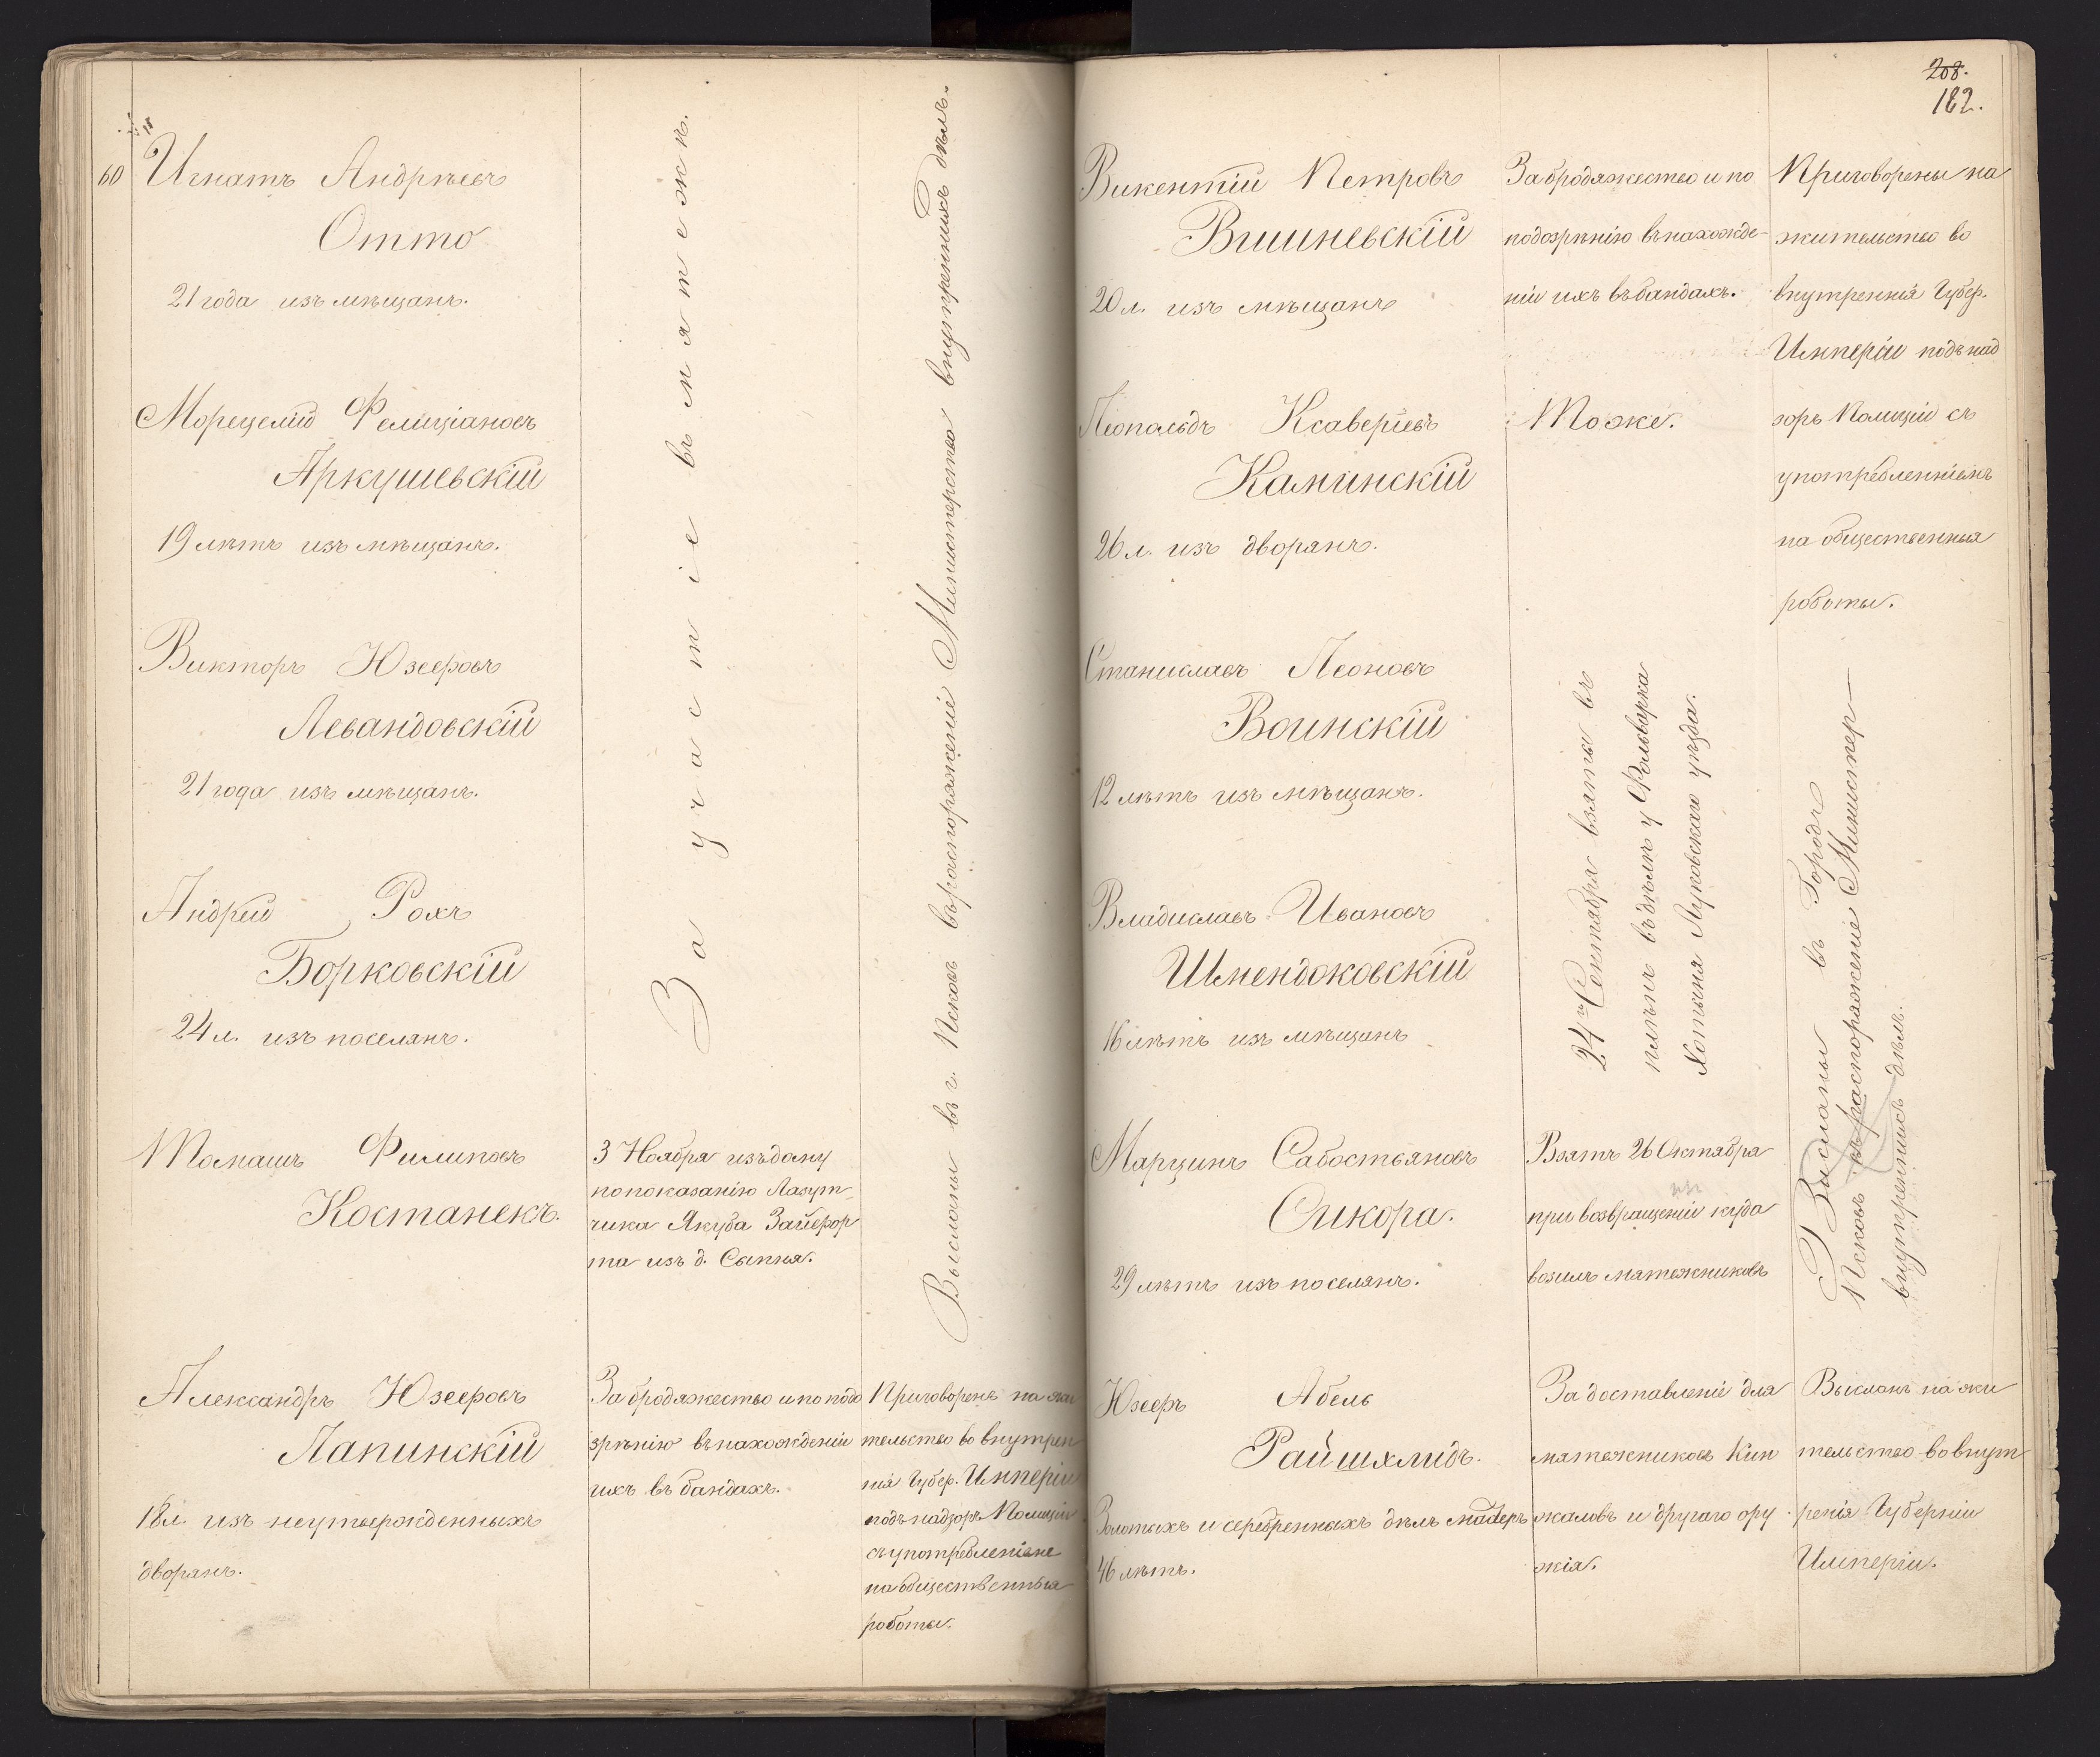 60
Игнатъ Андрѣевъ
Отто
21 года изъ мѣщанъ.
Морецелій Фелиціановъ
Аркушевскій
19 лѣтъ изъ мѣщанъ.
Викторъ Юзефовъ
Левандовскій
21 года изъ мѣщанъ.
Андрей Рохъ
Борковскій
24 л. изъ поселянъ.
Томашъ Филиповъ
Костанекъ.
Александръ Юзефовъ
Лапинскій
18 л. изъ неутвержденныхъ
дворянъ.
За участіе въ мятежѣ.
3 Ноября изъ дому
по показанію Лазут
чика Якуба Зайфор
та изъ д. Сыпня.
За бродяжество и по подо
зрѣнію въ нахожденіи
ихъ въ бандахъ.
Высланы въ г. Псковъ въ распоряженіе Министерства внутреннихъ дѣлъ.
Приговоренъ на жи
тельство во внутрен
нія Губер. Имперіи
подъ надзоръ Полиціи
съ употребленіемъ
на общественныя
роботы.
208.
182.
Викентій Петровъ
Вишневскій
20 л. изъ мѣщанъ
Леопольдъ Ксаверіевъ
Каминскій
26 л. изъ дворянъ.
Станиславъ Леоновъ
Воинскій
12 лѣтъ изъ мѣщанъ.
Владиславъ Ивановъ
Шмендоковскій
16 лѣтъ изъ мѣщанъ
Марцинъ Сабостьяновъ
Сикора.
29 лѣтъ изъ поселянъ.
Юзефъ Абель
Райшхмидъ.
Золотыхъ и серебренныхъ дѣлъ мастеръ
46 лѣтъ.
За бродяжество и по
подозрѣнію въ нахожде-
ніи ихъ въ бандахъ.
Тоже.
24го Сентября взяты въ
плѣнъ въ дѣлѣ у Фольварка
Хотыня Луковскаго уѣзда.
Взятъ 26 Октября
при возвращеніи куда
возилъ мятежниковъ
За доставленіе для
мятежниковъ Кин
жаловъ и другаго ору
жія.
Приговорены на
жительство во
внутреннія Губер.
Имперіи подъ над
зоръ Полиціи съ
употребленіемъ
на общественныя
роботы.
Высланы въ Городъ
Псковъ въ распоряженіе Министер-
внутреннихъ дѣлъ.
Высланъ на жи
тельство во внут
ренія Губерніи
Имперіи.